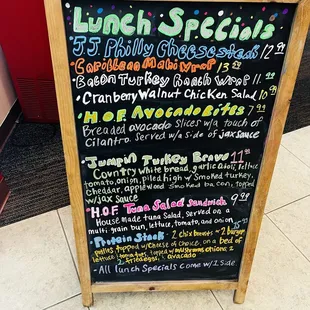 Lunch Specials
J.J. Philly Cheesesteak 12.99
Caribbean Mahi Wrap 13.99
Bacon Turkey Ranch Wrap 11.99
- Cranberry Walnut Chicken Salad 10.99
- H.O.F. Avocado Bites 7.99
Breaded avocado slices w/a touch of
Cilantro. Served w/a side of jax sauce
- Jumpin Turkey Bravo 11.99
Country white bread, garlic aioli, lettuce
tomato, onion, piled high w/ smoked turkey,
cheddar, applewood smoked bacon, topped
w/jax Sauce
- H.O.F Tuna Salad Sandwich 9.99
House made tuna Salad, served on a
multi grain bun, lettuce, tomato, and onion
- Protein Stack: 2 chix breasts or 2 burger
patties topped w/cheese of choice, on a bed of
lettuce topped w/mushrooms onions
2 fried eggs, avocado
- All lunch Specials come w/1 side